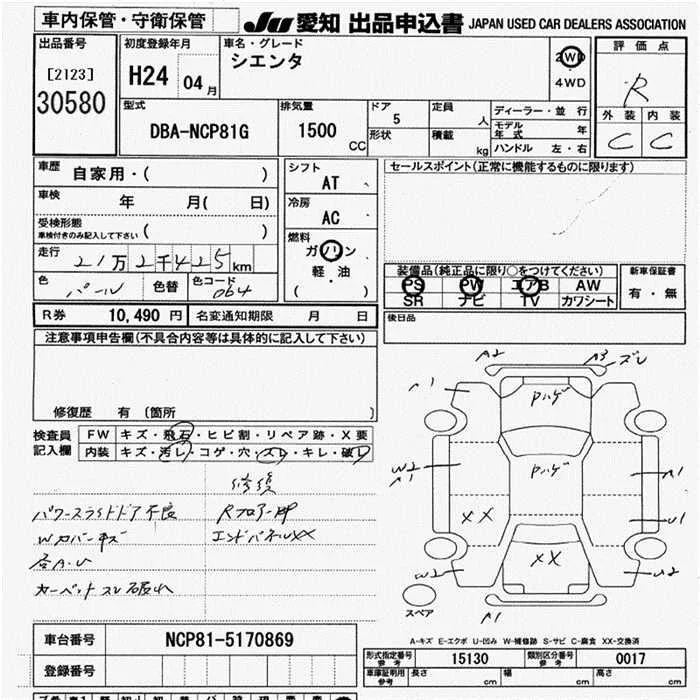 車内保管・守衛保管 JU 愛知 出品申込書 JAPAN USED CAR DEALERS ASSOCIATION
出品番号 初度登録年月 車名・グレード 2WD 評価点
[2123] H24 04月 シエンタ 4WD R
30580 型式 排気量 ドア 定員 ディーラー・並行 外装 内装
DBA-NCP81G 1500 CC 5 人 モデル年式 年 C C
形状 積載 kg ハンドル 左・右
車歴 自家用・( ) シフト AT セールスポイント(正常に機能するものに限ります)
車検 年 月( 日) 冷房 AC
受検形態 車検付きのみ記入して下さい ( ) 燃料 ガソリン
走行 21万2千425km 軽・油 装備品(純正品に限り○をつけてください) 新車保証書
色 パール 色替 色コード 064 ( ) PS PW エアB AW 有・無
SR ナビ TV カワシート
R券 10,490 円 名変通知期限 月 日 後日品
注意事項申告欄(不具合内容等は具体的に記入して下さい)
修復歴 有 〔箇所 〕
検査員 FW キズ・飛石・ヒビ割・リペア跡・X要
記入欄 内装 キズ・汚レ・コゲ・穴・スレ・キレ・破レ
修復
パワースライドドア不良 Rフロアー
Wカバーキズ エンドパネルXX
各A.U
カーペットスレ破れ
A2 A3 ズレ
A1 Pハゲ
W2 A1 Pハゲ A1
XX U1
XX
W2 U2
スペア A1
A-キズ E-エクボ U-凹み W-補修跡 S-サビ C-腐食 XX-交換済
車台番号 NCP81-5170869 形式指定番号 参考 15130 類別区分番号 参考 0017
登録番号 車庫証明用 参考 長さ cm 幅 cm 高さ cm